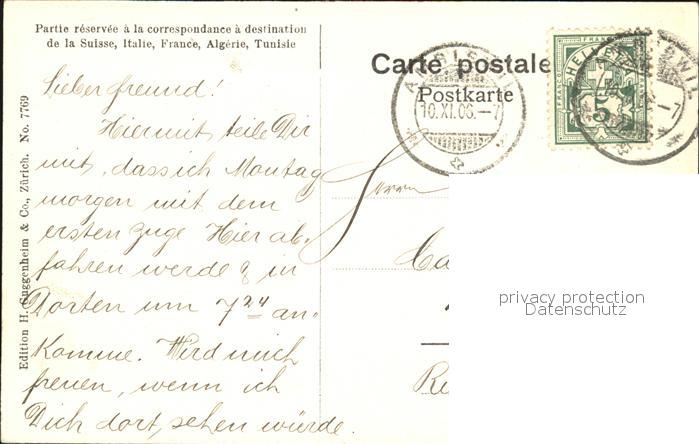 Partie réservée à la correspondance à destination
de la Suisse, Italie, France, Algérie, Tunisie
Carte postale
Postkarte
10.XI.06.–7
FRANCO
HELVETIA
5
Lieber freund!
Hiermit teile Dir
mit, dass ich Montag
morgen mit dem
ersten zuge Hier ab-
fahren werde & in
Dorten um 7 24 an-
Komme. Wird mich
freuen, wenn ich
Dich dort, sehen würde.
Herrn
Ca
Edition H. Guggenheim & Co., Zürich. No. 7769
privacy protection
Datenschutz